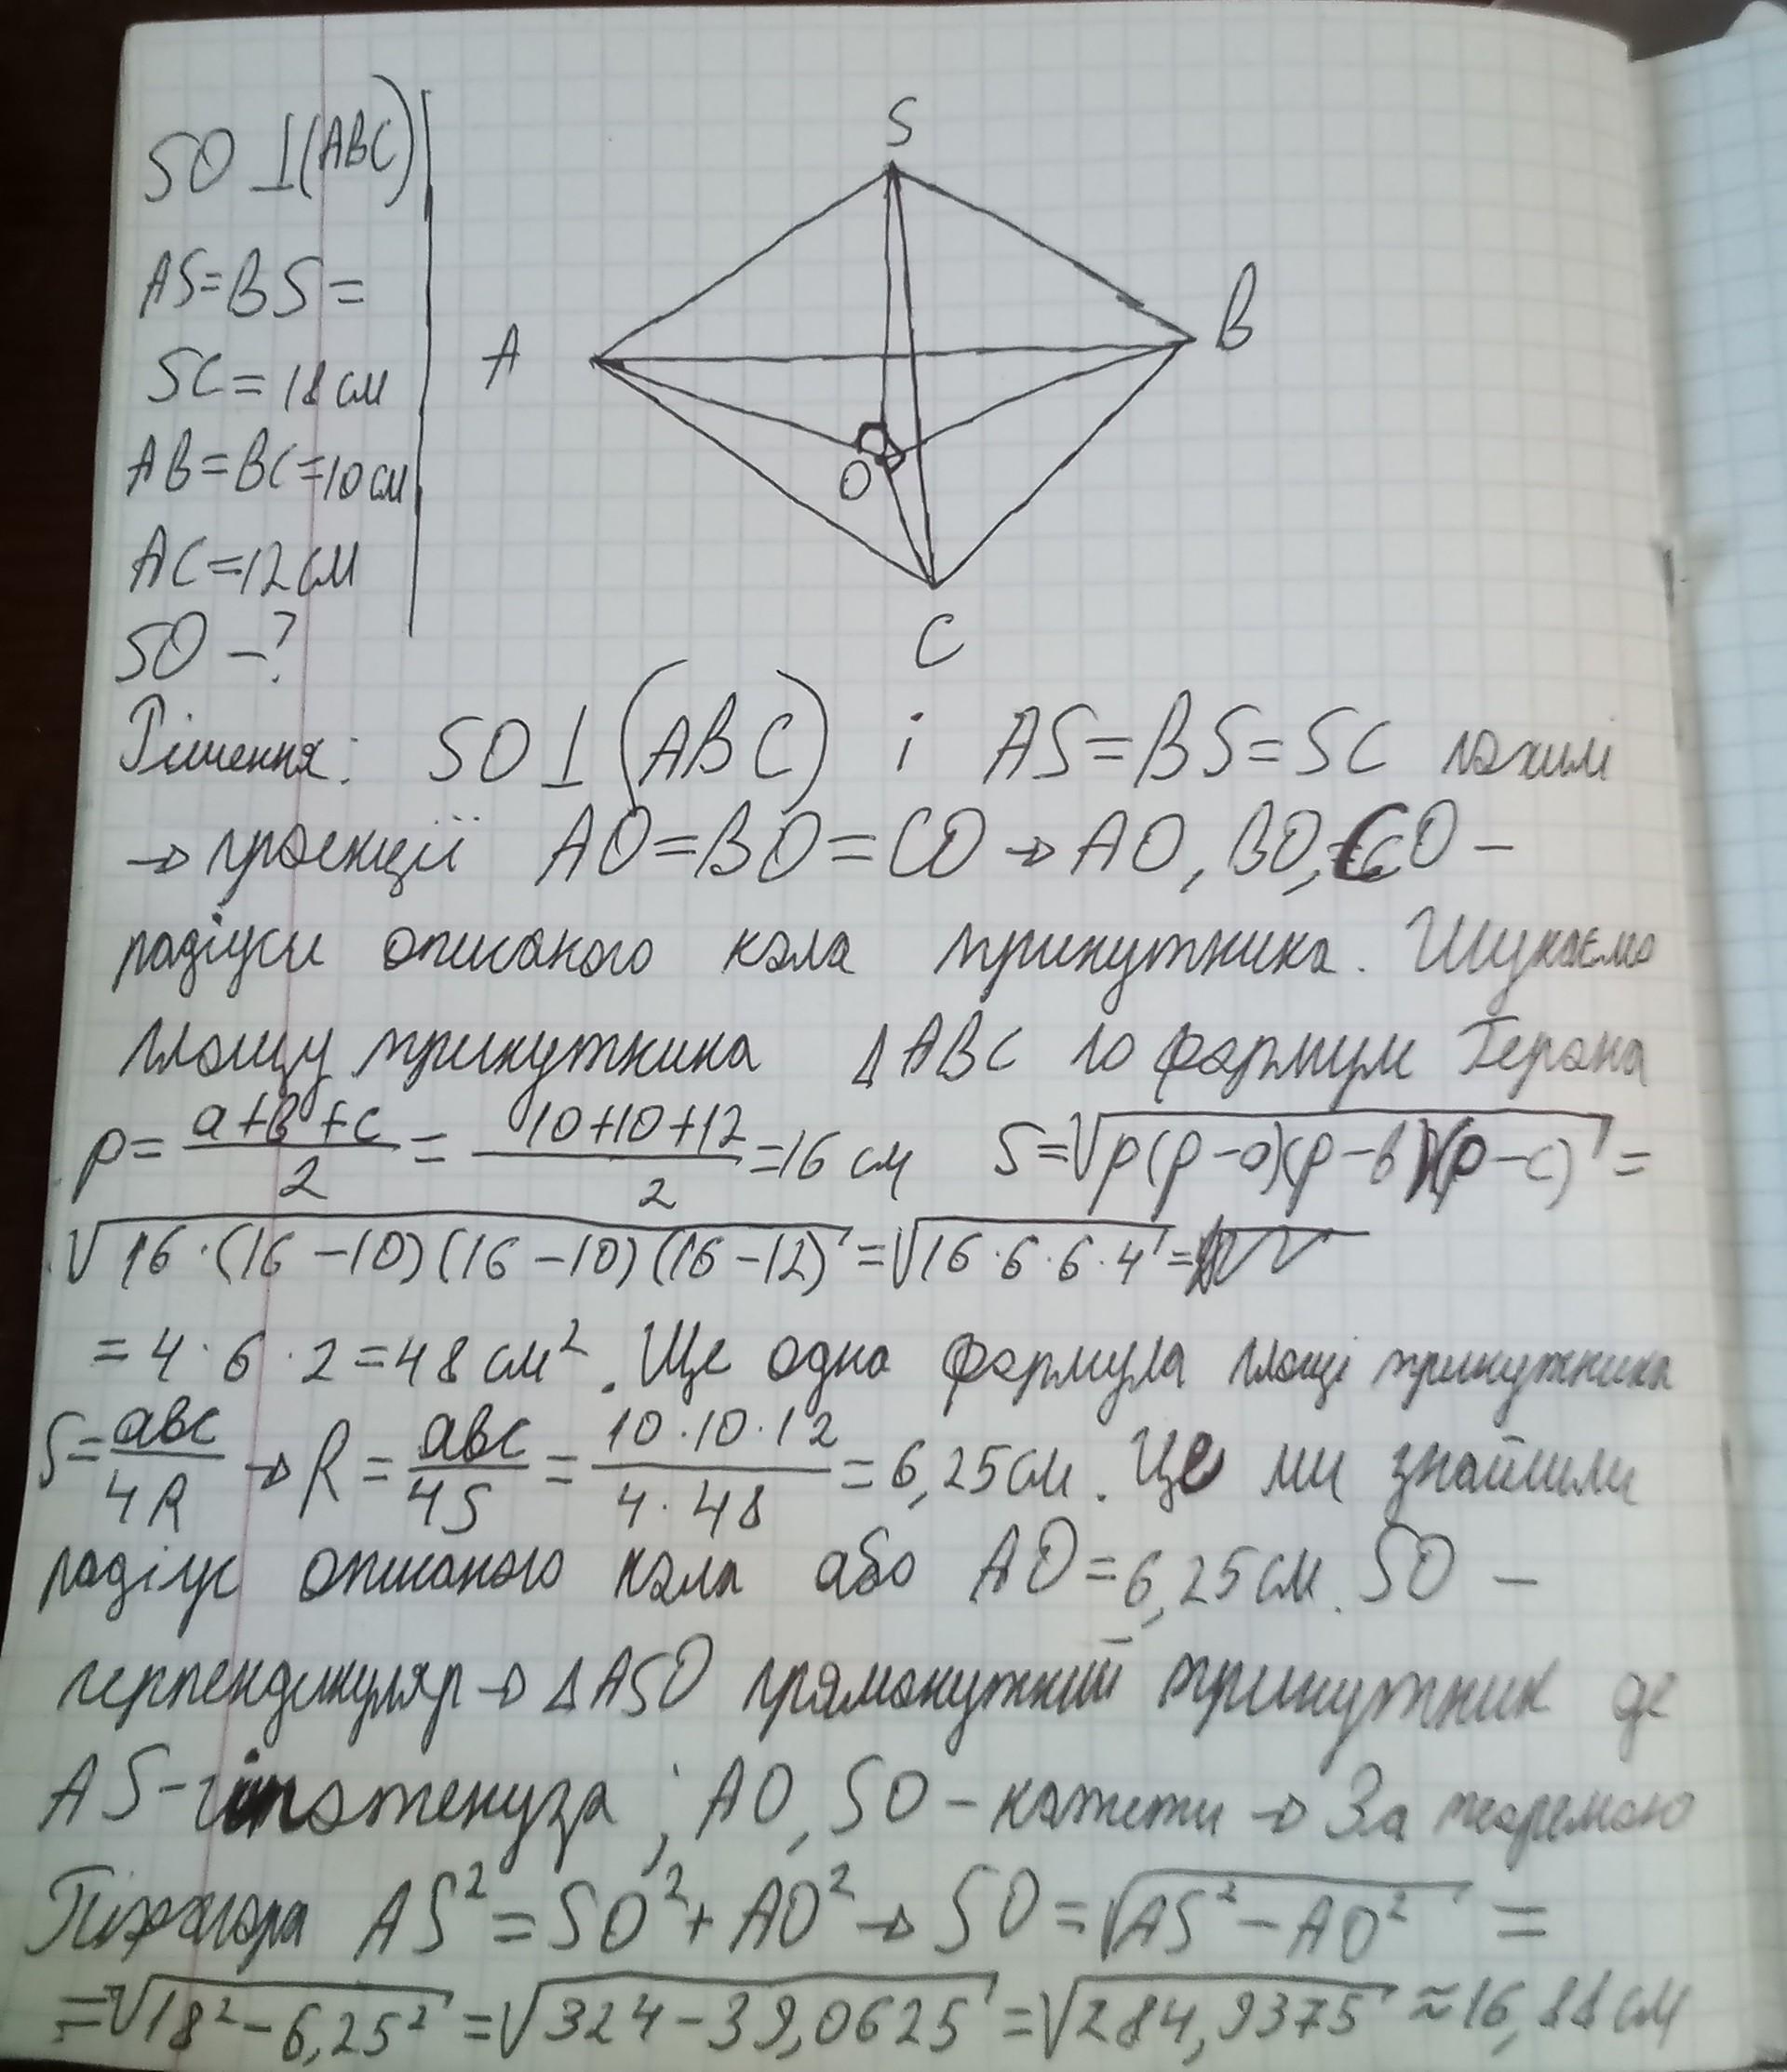 SO⊥(ABC)
AS=BS=
SC=18см
AB=BC=10см
AC=12см
SO-?
S
A
B
O
C
Рішення: SO⊥(ABC) і AS=BS=SC похилі
→ проекції AO=BO=CO → AO, BO, CO -
радіуси описаного кола трикутника. Шукаємо
площу трикутника ΔABC по формулі Герона
p=(a+b+c)/2=(10+10+12)/2=16 см S=√(p(p-a)(p-b)(p-c))=
√(16·(16-10)(16-10)(16-12))=√(16·6·6·4)=
=4·6·2=48см². Ще одна формула площі трикутника
S=abc/4R → R=abc/4S=(10·10·12)/(4·48)=6,25см. Це ми знайшли
радіус описаного кола або AO=6,25см. SO -
перпендикуляр → ΔASO прямокутний трикутник де
AS-гіпотенуза; AO, SO - катети → За теоремою
Піфагора AS²=SO²+AO² → SO=√(AS²-AO²)=
=√(18²-6,25²)=√(324-39,0625)=√284,9375≈16,88см